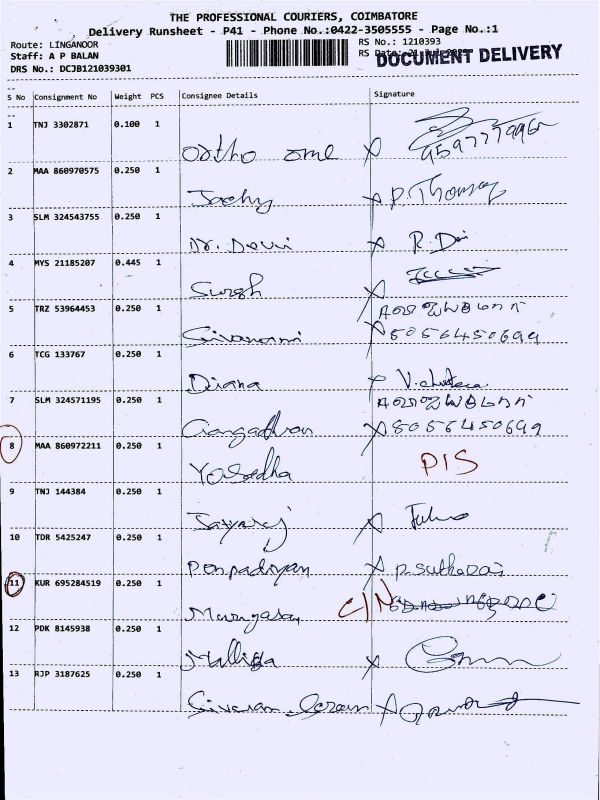 THE PROFESSIONAL COURIERS, COIMBATORE
Delivery Runsheet - P41 - Phone No.:0422-3505555 - Page No.:1
Route: LINGANOOR
RS No.: 1210393
Staff: A P BALAN
RS Date:
DOCUMENT DELIVERY
DRS No.: DCJB121039301
S No Consignment No Weight PCS Consignee Details Signature
1 TNJ 3302871 0.100 1
Ortho one X
2 MAA 860970575 0.250 1
X P. Thomas
3 SLM 324543755 0.250 1
Dr. Devi X R. Devi
4 MYS 21185207 0.445 1
Suresh X
5 TRZ 53964453 0.250 1
Sivanani X 8056450699
6 TCG 133767 0.250 1
Diana X
7 SLM 324571195 0.250 1
Gangadhran X 8056450699
8 MAA 860972211 0.250 1
Yasodha DIS
9 TNJ 144384 0.250 1
Satyaraj X
10 TDR 5425247 0.250 1
Ponpadiyan X
11 KUR 695284519 0.250 1
Murugasan C/N
12 PDK 8145938 0.250 1
Malliga X
13 RJP 3187625 0.250 1
Sivaram X